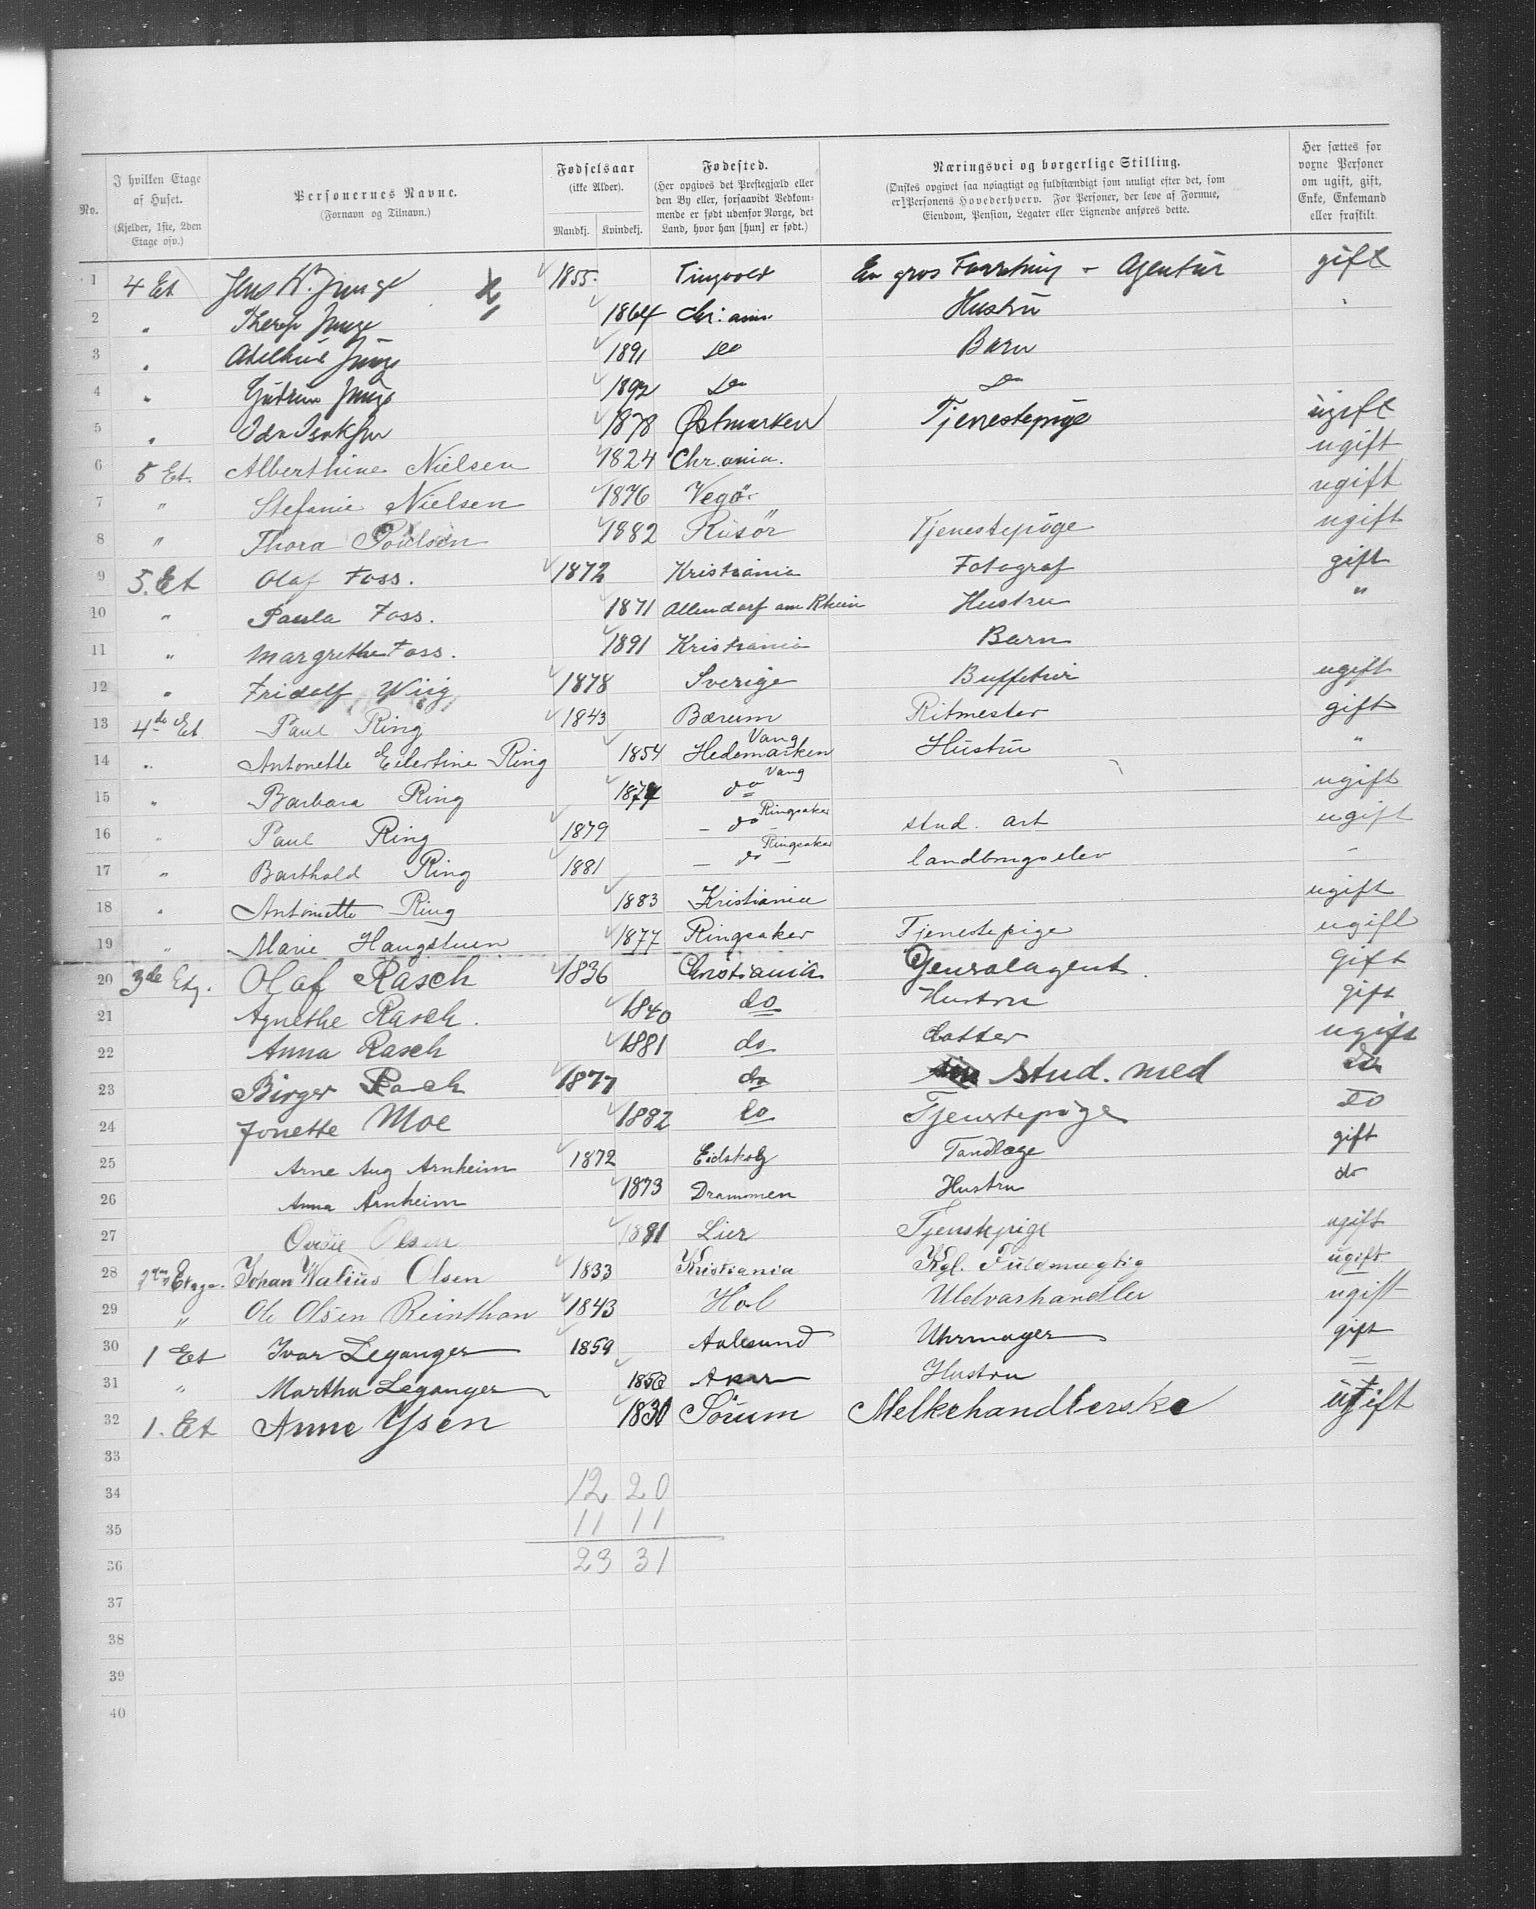 No.
I hvilken Etage af Huset. (Kjelder, 1ste, 2den Etage osv.)
Personernes Navne. (Fornavn og Tilnavn.)
Fødselsaar (ikke Alder). Mandkj. Kvindekj.
Fødested. (Her opgives det Prestegjæld eller den By eller, forsaavidt Vedkommende er født udenfor Norge, det Land, hvor han [hun] er født.)
Næringsvei og borgerlige Stilling. (Ønskes opgivet saa nøiagtigt og fuldstændigt som muligt efter det, som er Personens Hovederhverv. For Personer, der leve af Formue, Eiendom, Pension, Legater eller Lignende anføres dette.)
Her sættes for voxne Personer om ugift, gift, Enke, Enkemand eller fraskilt
1 4 Et Jens W. Junge 1855 Tingvold En gros Forretning - Agentur gift
2 " Junge 1864 Chr:ania Hustru "
3 " Junge 1891 Do Barn
4 " Gudrun Junge 1892 Do Do
5 " Ida Isaksen 1878 Østmarken Tjenestepige ugift
6 5 Et. Alberthine Nielsen 1824 Chr.ania. ugift
7 " Stefanie Nielsen 1876 Vegø ugift
8 " Thora Poulsen 1882 Risør Tjenestepige ugift
9 5. Et Olaf Foss. 1872 Kristiania Fotograf gift
10 " Paula Foss. 1871 Allendorf am Rhein Hustru "
11 " Margrethe Foss. 1891 Kristiania Barn
12 " Fridolf Wiig 1878 Sverige ugift
13 4de Et Paul Ring 1843 Bærum Ritmester gift
14 " Antonette Eilertine Ring 1854 Vang Hedemarken Hustru "
15 " Barbara Ring 1874 do Vang ugift
16 " Paul Ring 1879 - do - Ringsaker stud. art ugift
17 " Barthold Ring 1881 - do - Ringsaker landbrugselev -
18 " Antoinette Ring 1883 Kristiania ugift
19 " Marie Haugstuen 1877 Ringsaker Tjenestepige ugift
20 3de Etg. Olaf Rasch 1836 Christiania Generalagent. gift
21 Agnethe Rasch. 1840 do Hustru gift
22 Anna Rasch 1881 do datter ugift
23 Birger Rasch 1877 do stud. med do
24 Jonette Moe 1882 do Tjenstepige do
25 Arne Aug Arnheim 1872 Eidskog Tandlæge gift
26 Anna Arnheim 1873 Drammen Hustru do
27 Olsen 1881 Lier Tjenstepige ugift
28 Etage. Johan Walius Olsen 1833 Kristiania Kgl. Fuldmægtig ugift
29 " Ole Olsen Reinthon 1843 Hol Uldvarhandler ugift
30 1 Et Ivar Leganger 1859 Aalesund Uhrmager gift
31 " Martha Leganger 1856 Aker Hustru "
32 1. Et Anne Ysen 1830 Sörum Melkehandlerske ugift
33
34 12 20
35 11 11
36 23 31
37
38
39
40